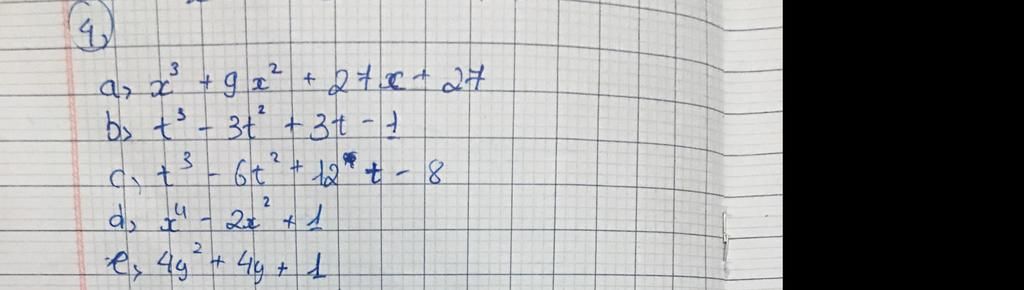 4,
a, x³ + 9x² + 27x + 27
b, t³ - 3t² + 3t - 1
c, t³ - 6t² + 12 t - 8
d, x⁴ - 2x² + 1
e, 4y² + 4y + 1